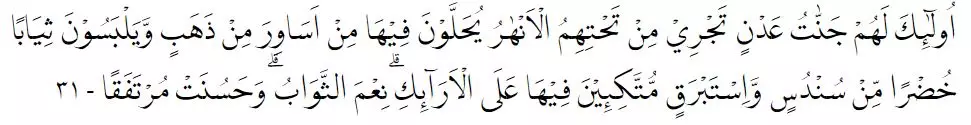 اُولٰۤىِٕكَ لَهُمْ جَنّٰتُ عَدْنٍ تَجْرِيْ مِنْ تَحْتِهِمُ الْاَنْهٰرُ يُحَلَّوْنَ فِيْهَا مِنْ اَسَاوِرَ مِنْ ذَهَبٍ وَّيَلْبَسُوْنَ ثِيَابًا
خُضْرًا مِّنْ سُنْدُسٍ وَّاِسْتَبْرَقٍ مُّتَّكِـِٕيْنَ فِيْهَا عَلَى الْاَرَاۤىِٕكِۗ نِعْمَ الثَّوَابُۗ وَحَسُنَتْ مُرْتَفَقًا - ٣١